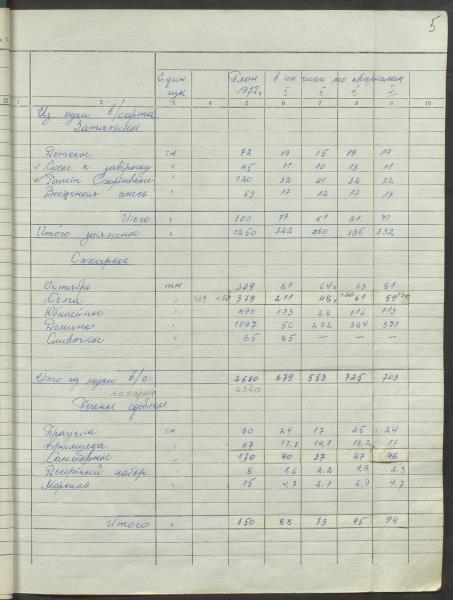 5
Един изм
План 1972г.
в том числе по кварталам
I II III IV
1 2 3 4 5 6 7 8 9 10
Из муки в/сорта
Затяжное
Детское тн 72 19 15 19 19
Сухое к завтраку " 45 11 10 13 11
" 120 32 24 32 32
Восточная смесь " 63 17 12 17 17
Итого " 300 79 61 81 79
Итого затяжное " 1250 322 260 336 332
Сахарное
Октябрь тн 309 81 64 83 81
" 429 +50 379 211 48 61 59
Юбилейное " 490 173 88 116 113
Домино " 1097 50 292 384 371
Сливочное " 85 85 — — —
Итого из муки в/с " 2660 679 553 725 703
сахарное 2360
Печенье сдобное
тн 90 24 17 25 24
Примула " 67 17,7 14,1 18,2 17
" 170 40 37 47 46
Десертный набор " 8 1,6 2,2 1,9 2,3
" 15 4,7 2,7 2,9 4,7
Итого " 350 88 73 95 94